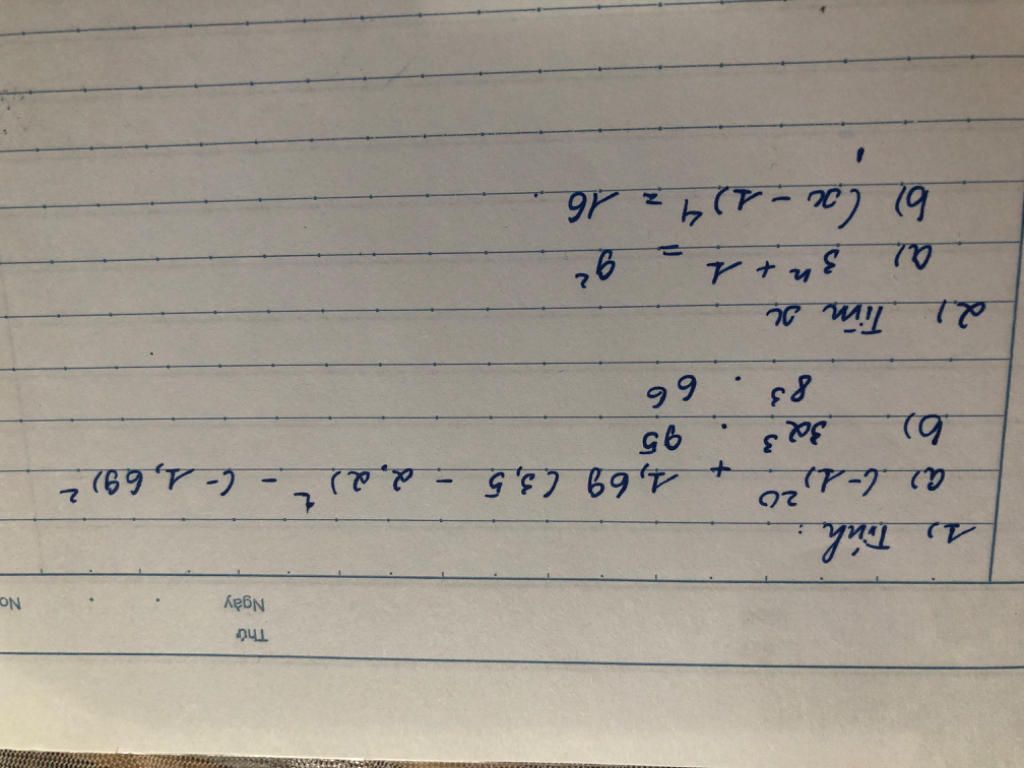 Thứ
Ngày No
1) Tính :
a) (-1)²⁰ + 1,69 (3,5 - 2,2)² - (-1,69)²
b) 32³ . 95
83 . 66
2) Tìm x
a) 3ⁿ + 1 = 9²
b) (x - 1)⁴ = 16